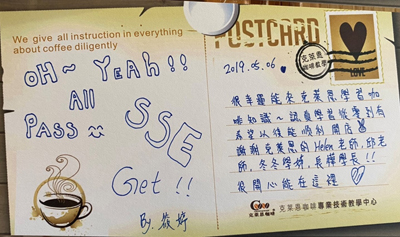 We give all instruction in everything
about coffee diligently
OH~ YEAH!!
All
Pass
SSE
Get !!
By. 筱婷
POSTCARD
LOVE
克萊恩
咖啡教學
2019.05.06
很幸運能來克萊恩學習咖
啡知識~ 認真學習後會到有
希望以後能順利開店
謝謝克萊恩的 Helen 老師, 邱老
師, 冬冬學姊, 長樺學長!!
很開心能在這裡
克萊恩咖啡
克萊恩咖啡專業技術教學中心